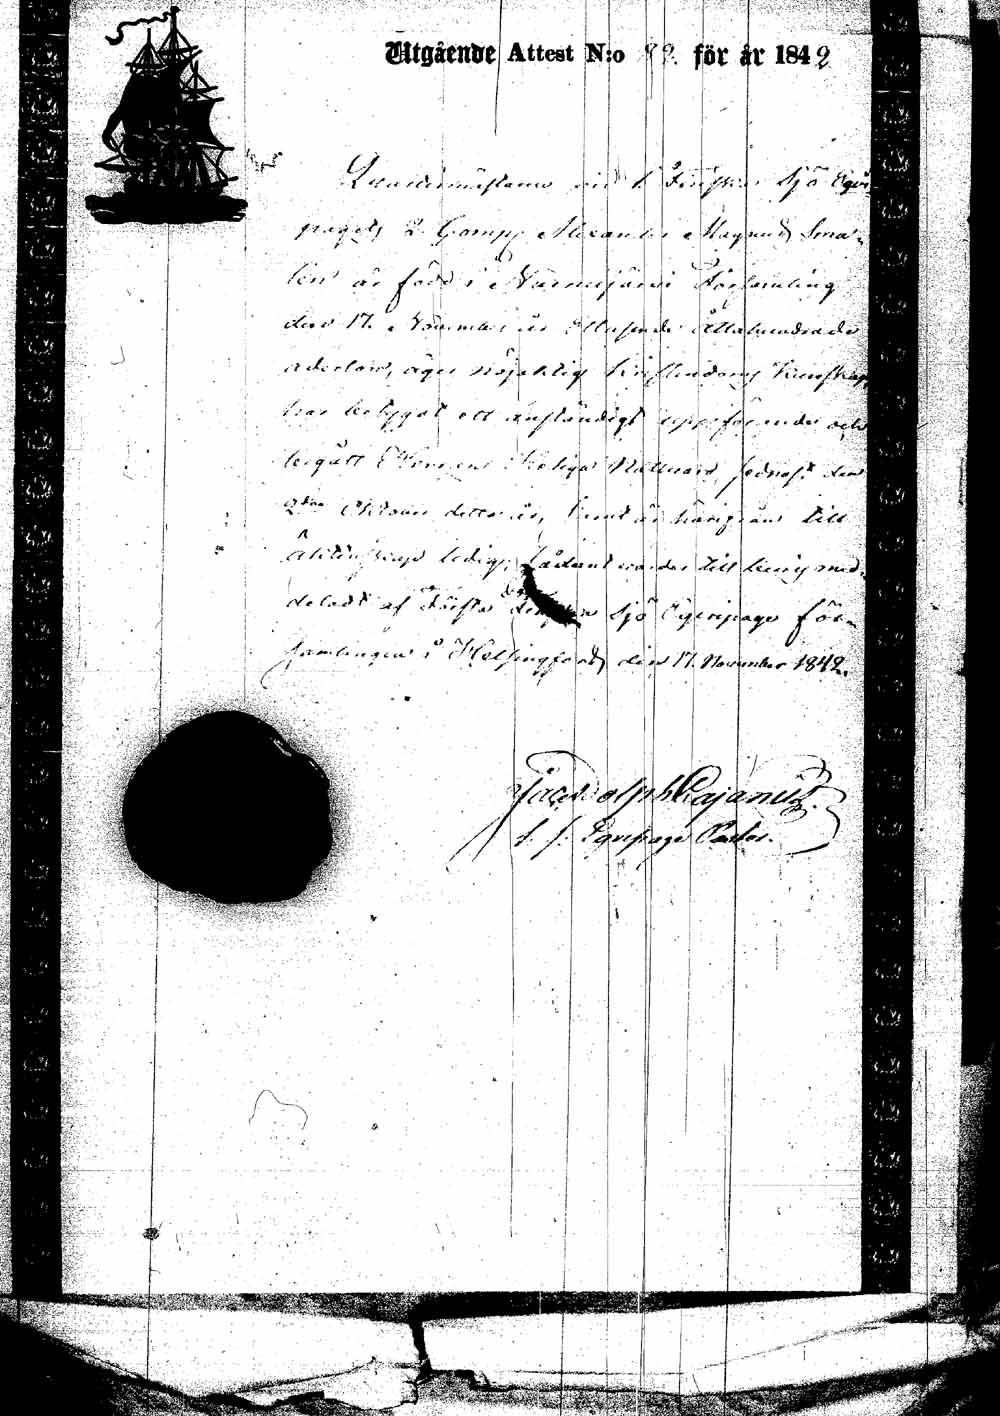 Utgående Attest N:o 82. för år 1842
Quartermästaren vid 1. Finska Sjö Equi-
pagets 2. Comp. Alexander Magnus Sma-
lén är född i Församling
den 17. November år Ettusende Åttahundrade
aderton, äger nöjaktig Kristendoms Kunskap,
har betygat ett anständigt uppförande och
begått Herrens Heliga Nattvard sednast den
2dra October detta år, samt är härifrån till
äktenskap ledig; Sådant varder till bevis med-
deladt af Första Finska Sjö Equipage för-
samlingen i Helsingfors den 17. November 1842.
Jac. Adolph Cajanus.
Equipage Pastor.